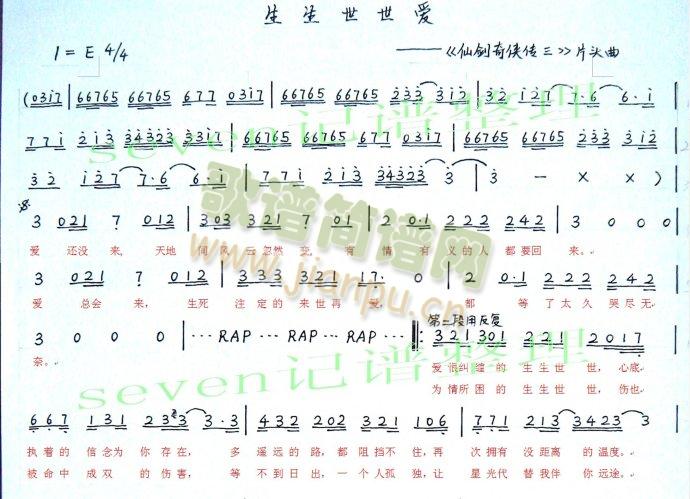 生生世世爱
1=E 4/4 ——《仙剑奇侠传三》片头曲
(0317 | 66765 66765 677 0317 | 66765 66765 2333 313 | 32 127 7·6 6·1
771 213 34323 3317 | 66765 66765 677 0317 | 66765 66765 233 313
32 127 7·6 6·1 | 771 213 34323 3 | 3 — X X )
3 021 7 012 | 303 321 701 | 2 0·1 222 242 | 3 0 0 0
爱 还没来, 天地 间风云忽然变, 有情有义的人都要回来。
3 021 7 012 | 333 321 17· 0 | 2 0·1 222 242
爱 总会来, 生死 注定的来世再爱, 都 等了太久哭尽无
第二段用反复
3 0 0 0 | ··· RAP ··· RAP ··· RAP ··· ‖: 321 301 221 2017
奈。 爱恨纠缠的生生世世,心底
为情所困的生生世世,伤也
667 131 233 3·3 | 432 202 321 106 | 771 213 3423 3
执着的信念为你存在, 多遥远的路,都阻挡不住,再次拥有没距离的温度。
被命中成双的伤害, 等不到日出,一个人孤独,让星光代替我伴你远途。
seven记谱整理
seven记谱整理
歌谱简谱网
www.jianpu.cn